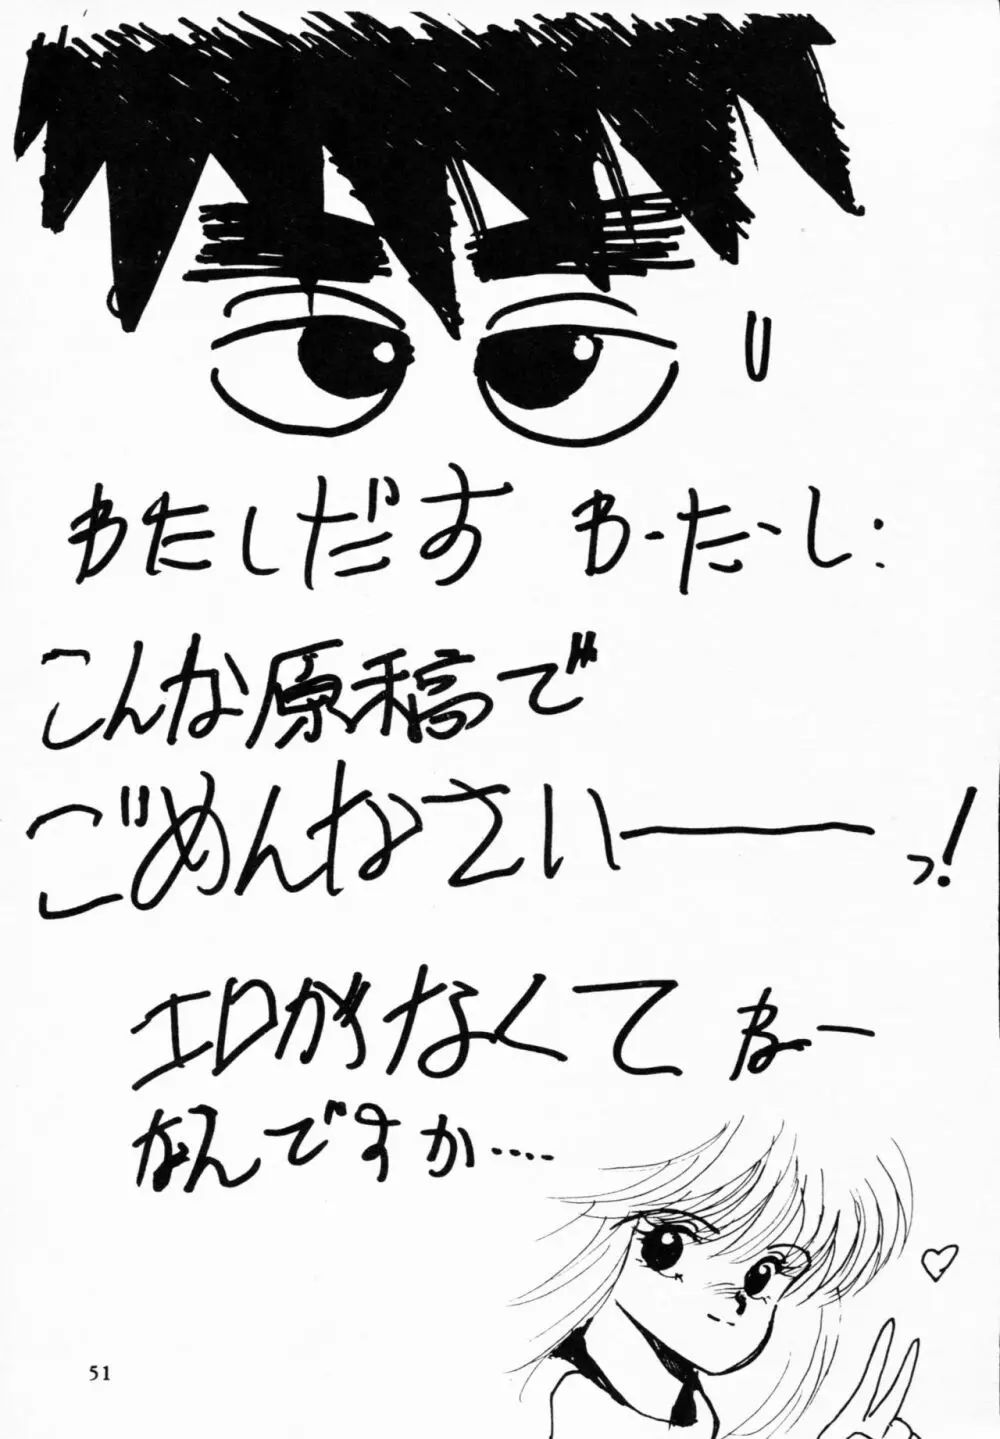 わたしだす わ・た・し:
こんな原稿で
ごめんなさい――――っ!
エロがなくて なー
なんですか‥‥
51